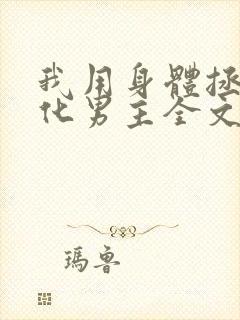 我用身體拯
化男主全文
瑪魯